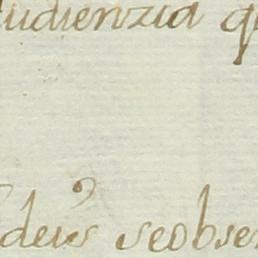 udienzia q
deus seobse